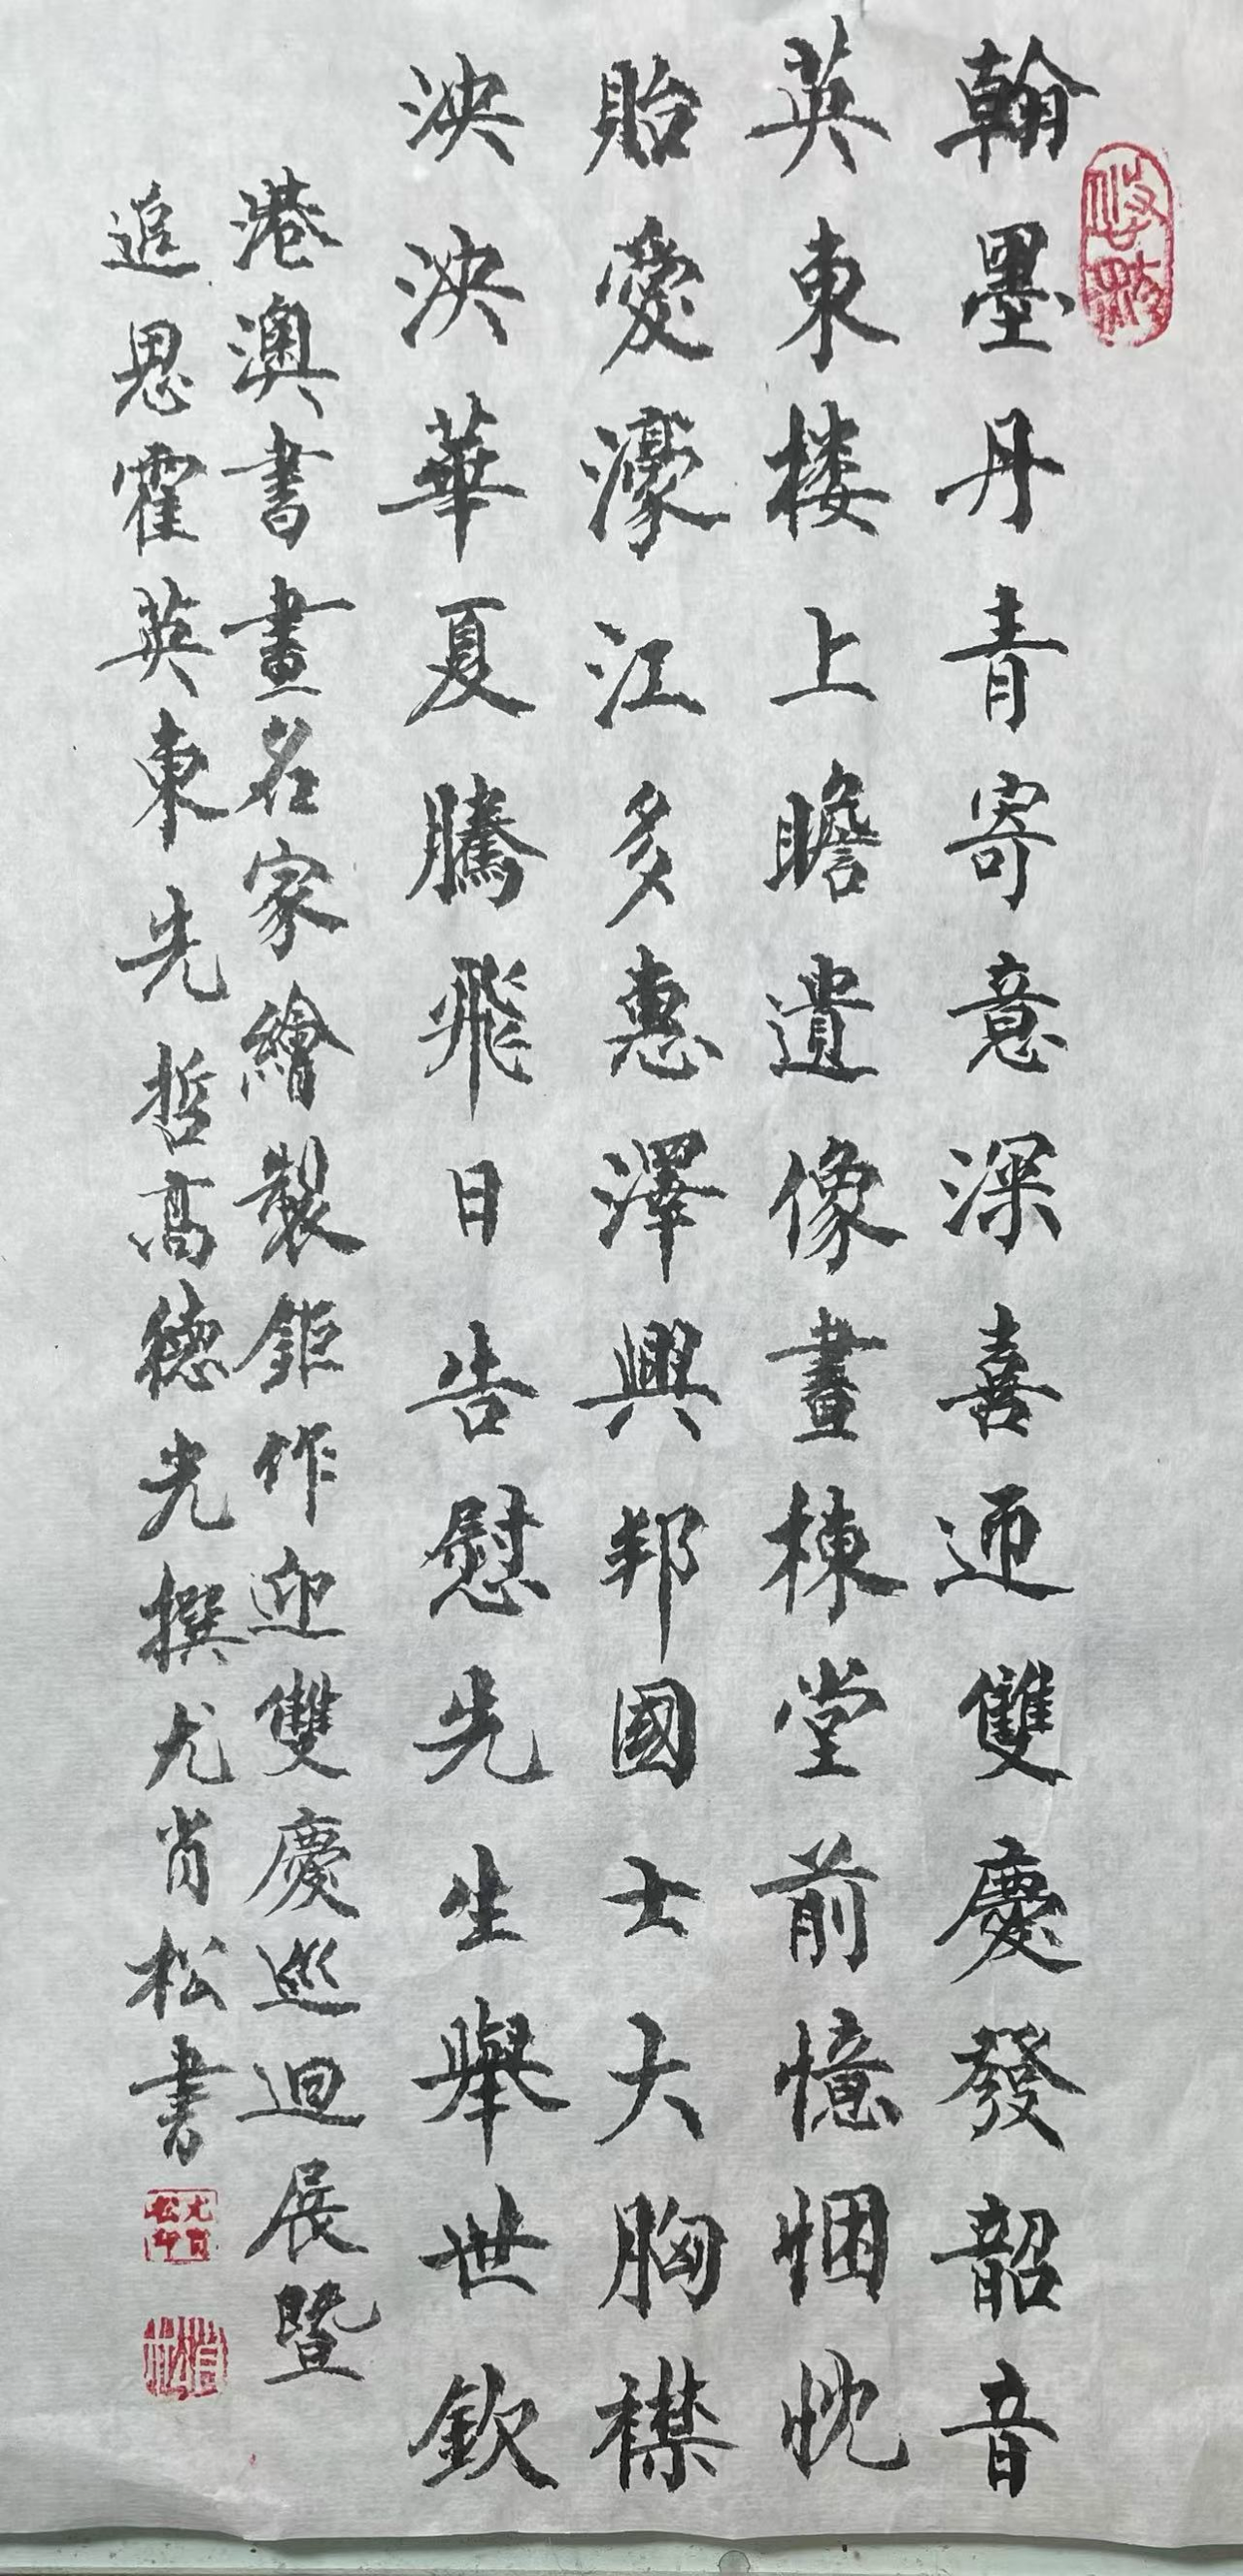 翰墨丹青寄意深喜迊雙慶發韶音
英東楼上瞻遺像畫棟堂前憶悃忱
貽愛濠江多惠澤興邦國士大胸襟
泱泱華夏騰飛日告慰先生舉世欽
港澳書畫名家繪製鉅作迎雙慶巡迴展暨
追思霍英東先哲高德光撰尤肖松書
尤肖松印